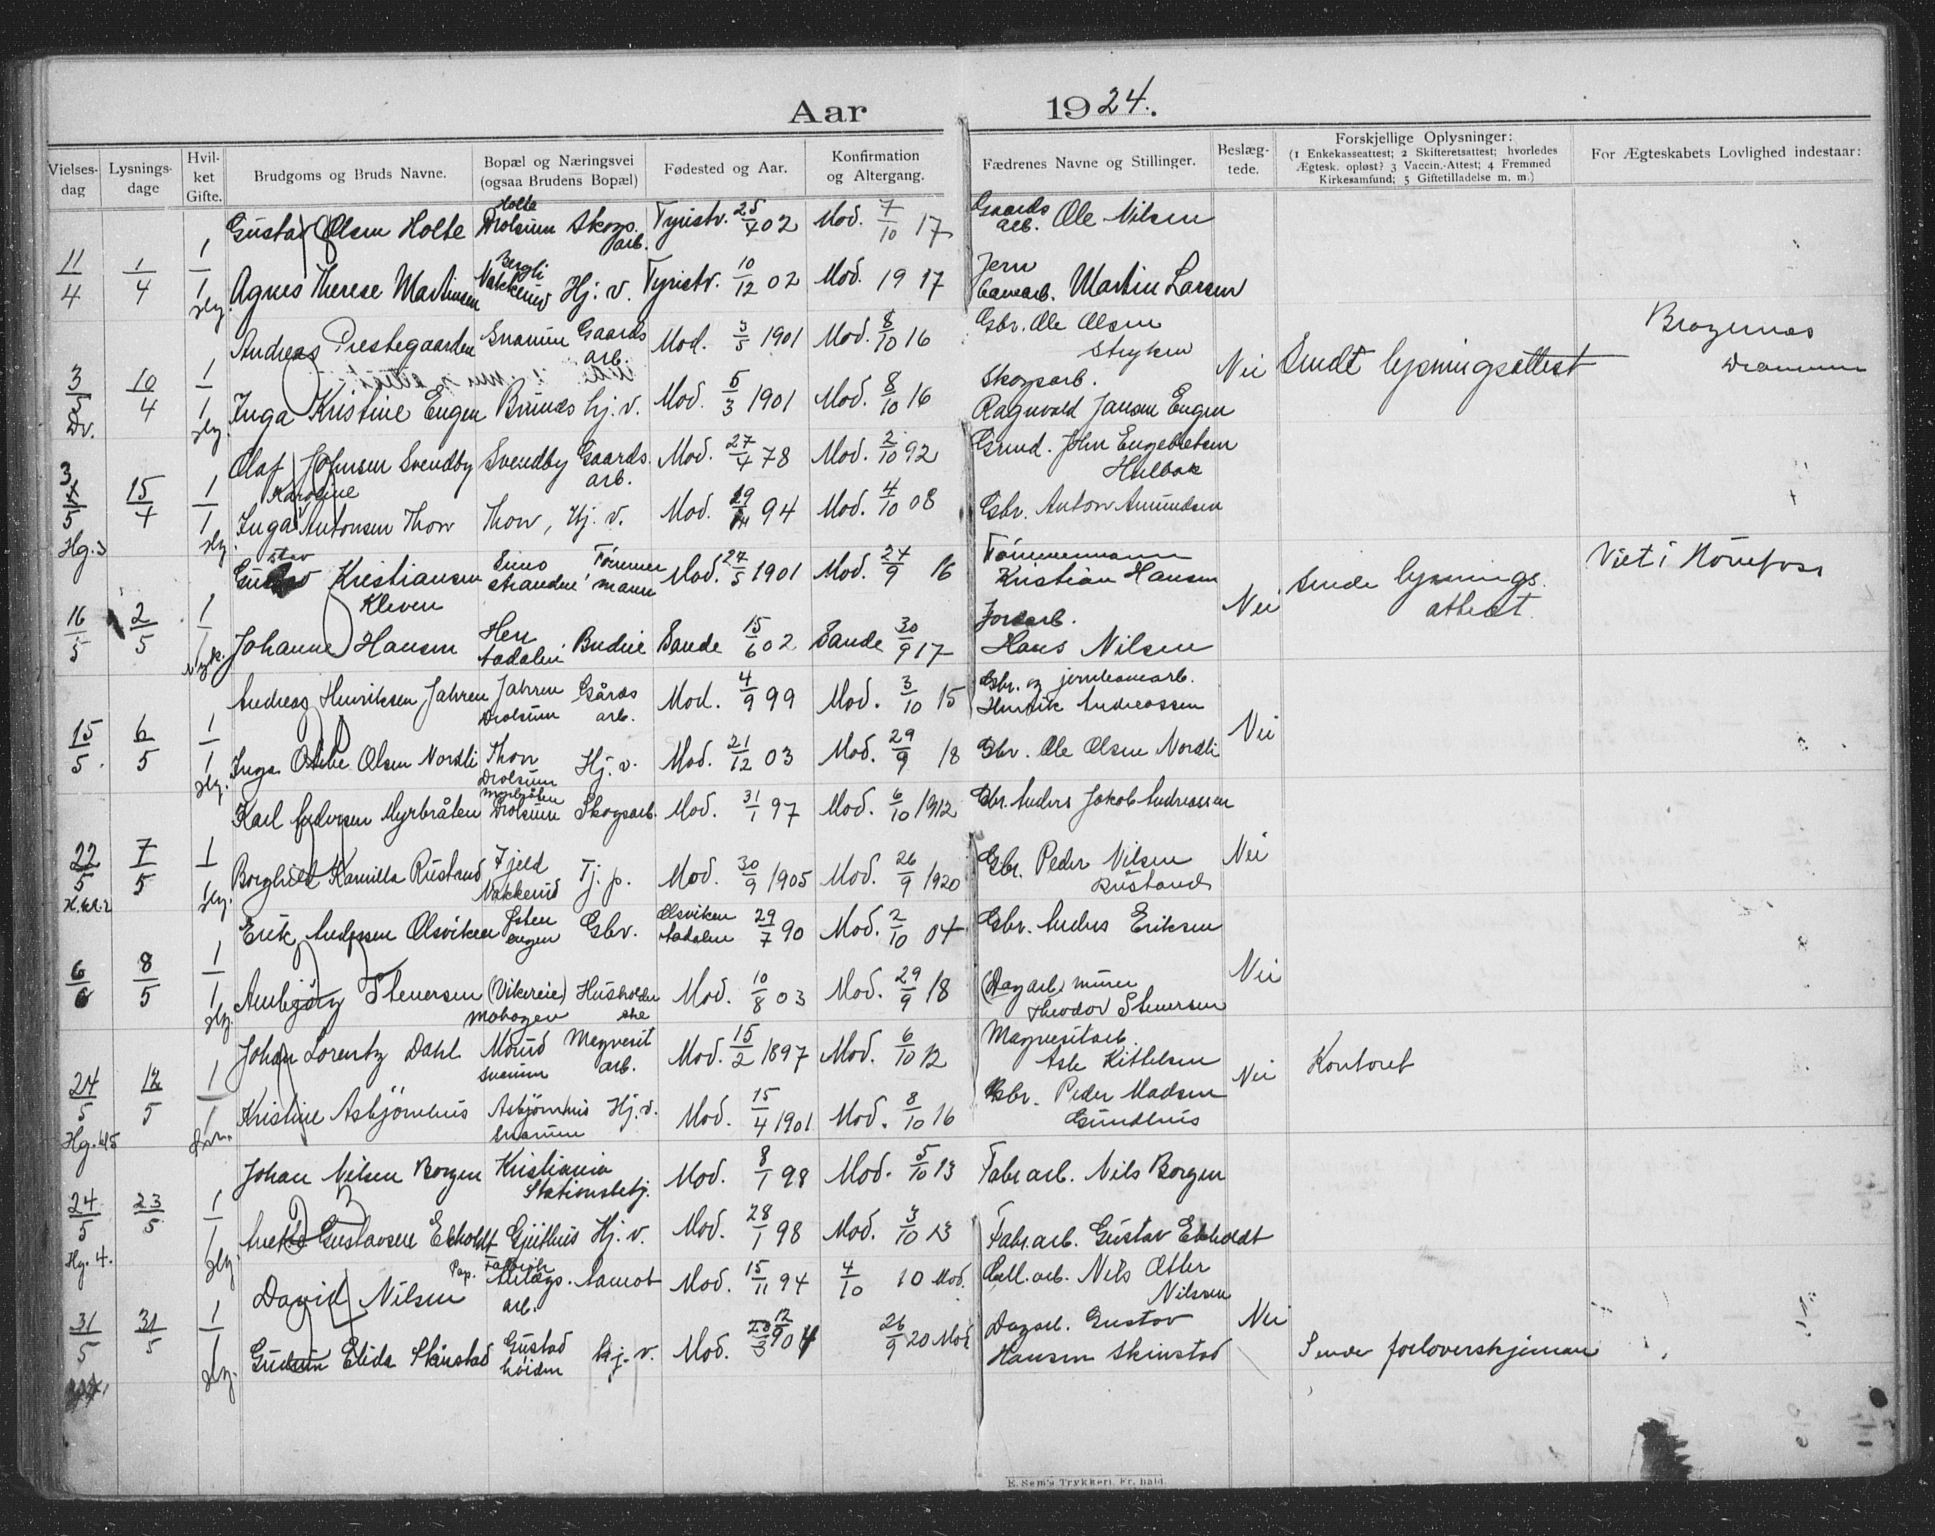 Aar 1924.
Vielses-dag
Lysnings-dage
Hvil-ket Gifte.
Brudgoms og Bruds Navne.
Bopæl og Næringsvei (ogsaa Brudens Bopæl)
Fødested og Aar.
Konfirmation og Altergang.
Fædrenes Navne og Stillinger.
Beslæg-tede.
Forskjellige Oplysninger: (1 Enkekasseattest; 2 Skifteretsattest; hvorledes Ægtesk. opløst? 3 Vaccin.-Attest; 4 Fremmed Kirkesamfund; 5 Giftetilladelse m. m.)
For Ægteskabets Lovlighed indestaar:
Gustav Olsen Holte Holte Drolsum Skogs. arb. Tyristr. 25/4 02 Mod. 7/10 17 Gaards arb. Ole Nilsen
11/4 1/4 1/1 Agnes Therese Martinsen Bergli Nakkerud Hj. v. Tyristr. 10/12 02 Mod. 19 17 Martin Larsen
Andreas Prestegaarden Snarum Gaards arb. Mod. 3/5 1901 Mod. 8/10 16 Gbr. Ole Olsen Stryken
3/5 Dr. 10/4 1/1 Inga Kristine Engen hj. v. Mod. 5/3 1901 Mod. 8/10 16 Skogsarb. Ragnvald Jansen Engen Nei Sendt lysningsattest Bragernes Drammen
Olaf Johnsen Svendby Svendby Gaards. arb. Mod. 27/4 78 Mod. 2/10 92 John Engebretsen Hulbak
15/4 1/1 Inga Karoline Antonsen Thon Thon, Hj. v. Mod. 94 Mod. 4/10 08 Gbr. Anton Amundsen
Gustav Kristiansen Kleven Simostranden Tømmermann Mod. 27/5 1901 Mod. 24/9 16 Tømmermann Kristian Hansen
16/5 2/5 1/1 Johanne Hansen Budeie Sande 15/6 02 Sande 30/9 17 Jordarb. Hans Nilsen Nei Sende lysnings. attest. Viet i Hønefoss
Andreas Henriksen Jahren Jahren Drolsum Gårds arb. Mod. 4/9 99 Mod. 3/10 15 Gbr. og jernbanearb. Henrik Andreassen
15/5. 6/5 1/1 Inga Olsen Nordli Thon Drolsum Hj. v. Mod. 21/12 03 Mod. 29/9 18 Gbr. Ole Olsen Nordli Nei
Karl Andersen Myrbråten Myrbråten Drolsum Skogsarb. Mod. 31/1 97 Mod. 6/10 1912 Gbr. Anders Jakob Andreassen
22/5 7/5 1/1 Borghild Kamilla Rustand Fjeld Nakkerud Tj. p. Mod. 30/9 1905 Mod. 26/9 1920 Gbr. Peder Nilsen Rustand Nei
Erik Andersen Olsviken Gbr. Olsviken 29/7 90 Mod. 2/10 04 Gbr. Anders Eriksen
6/6 8/5 1/1 Stenersen (Vikereie) Modum Mod. 10/8 03 Mod. 29/9 18 (Dagarb) murer Theodor Stenersen Nei
Johan Lorentz Dahl Snarum Magnesit arb. Mod. 15/2 1897 Mod. 6/10 12 Magnesitarb. Asle Kittelsen
24/5 12/5 1/1 Kristine Asbjørnhus Asbjørnhus Snarum Hj. v. Mod. 15/4 1901 Mod. 8/10 16 Gbr. Peder Madsen Gundhus Nei Kontoret
Johan Nilsen Borgen Kristiania Stationsbetj. Mod. 8/1 98 Mod. 5/10 13 Fabr arb. Nils Borgen
24/5 Hg. 4. 23/5 1/1 Gustavsen Ekholdt Gjethus Hj. v. Mod. 28/1 98 Mod. 3/10 13 Fabr. arb. Gustav Ekholdt
David Nilsen Pap. Fabrik arb. Aamot Mod. 15/11 94 4/10 10 Mod. Cell. arb. Nils Otter Nilssen
31/5 31/5 1/1 Gudrun Elida Skinstad Gustad høiden hj. v. Mod. 26/9 20 Mod Dagarb. Gustav Hansen Skinstad Nei Sende forloverskjemaer
E. Sem's Trykkeri, Fr. hald.